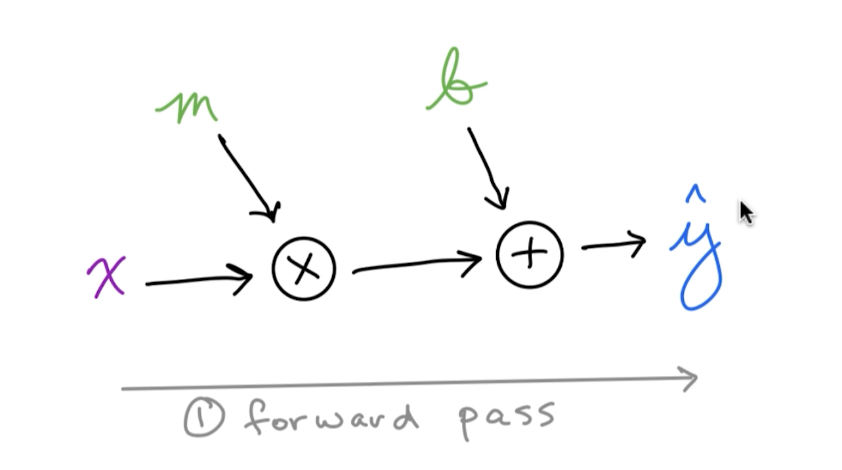 m b
x × + ŷ
① forward pass